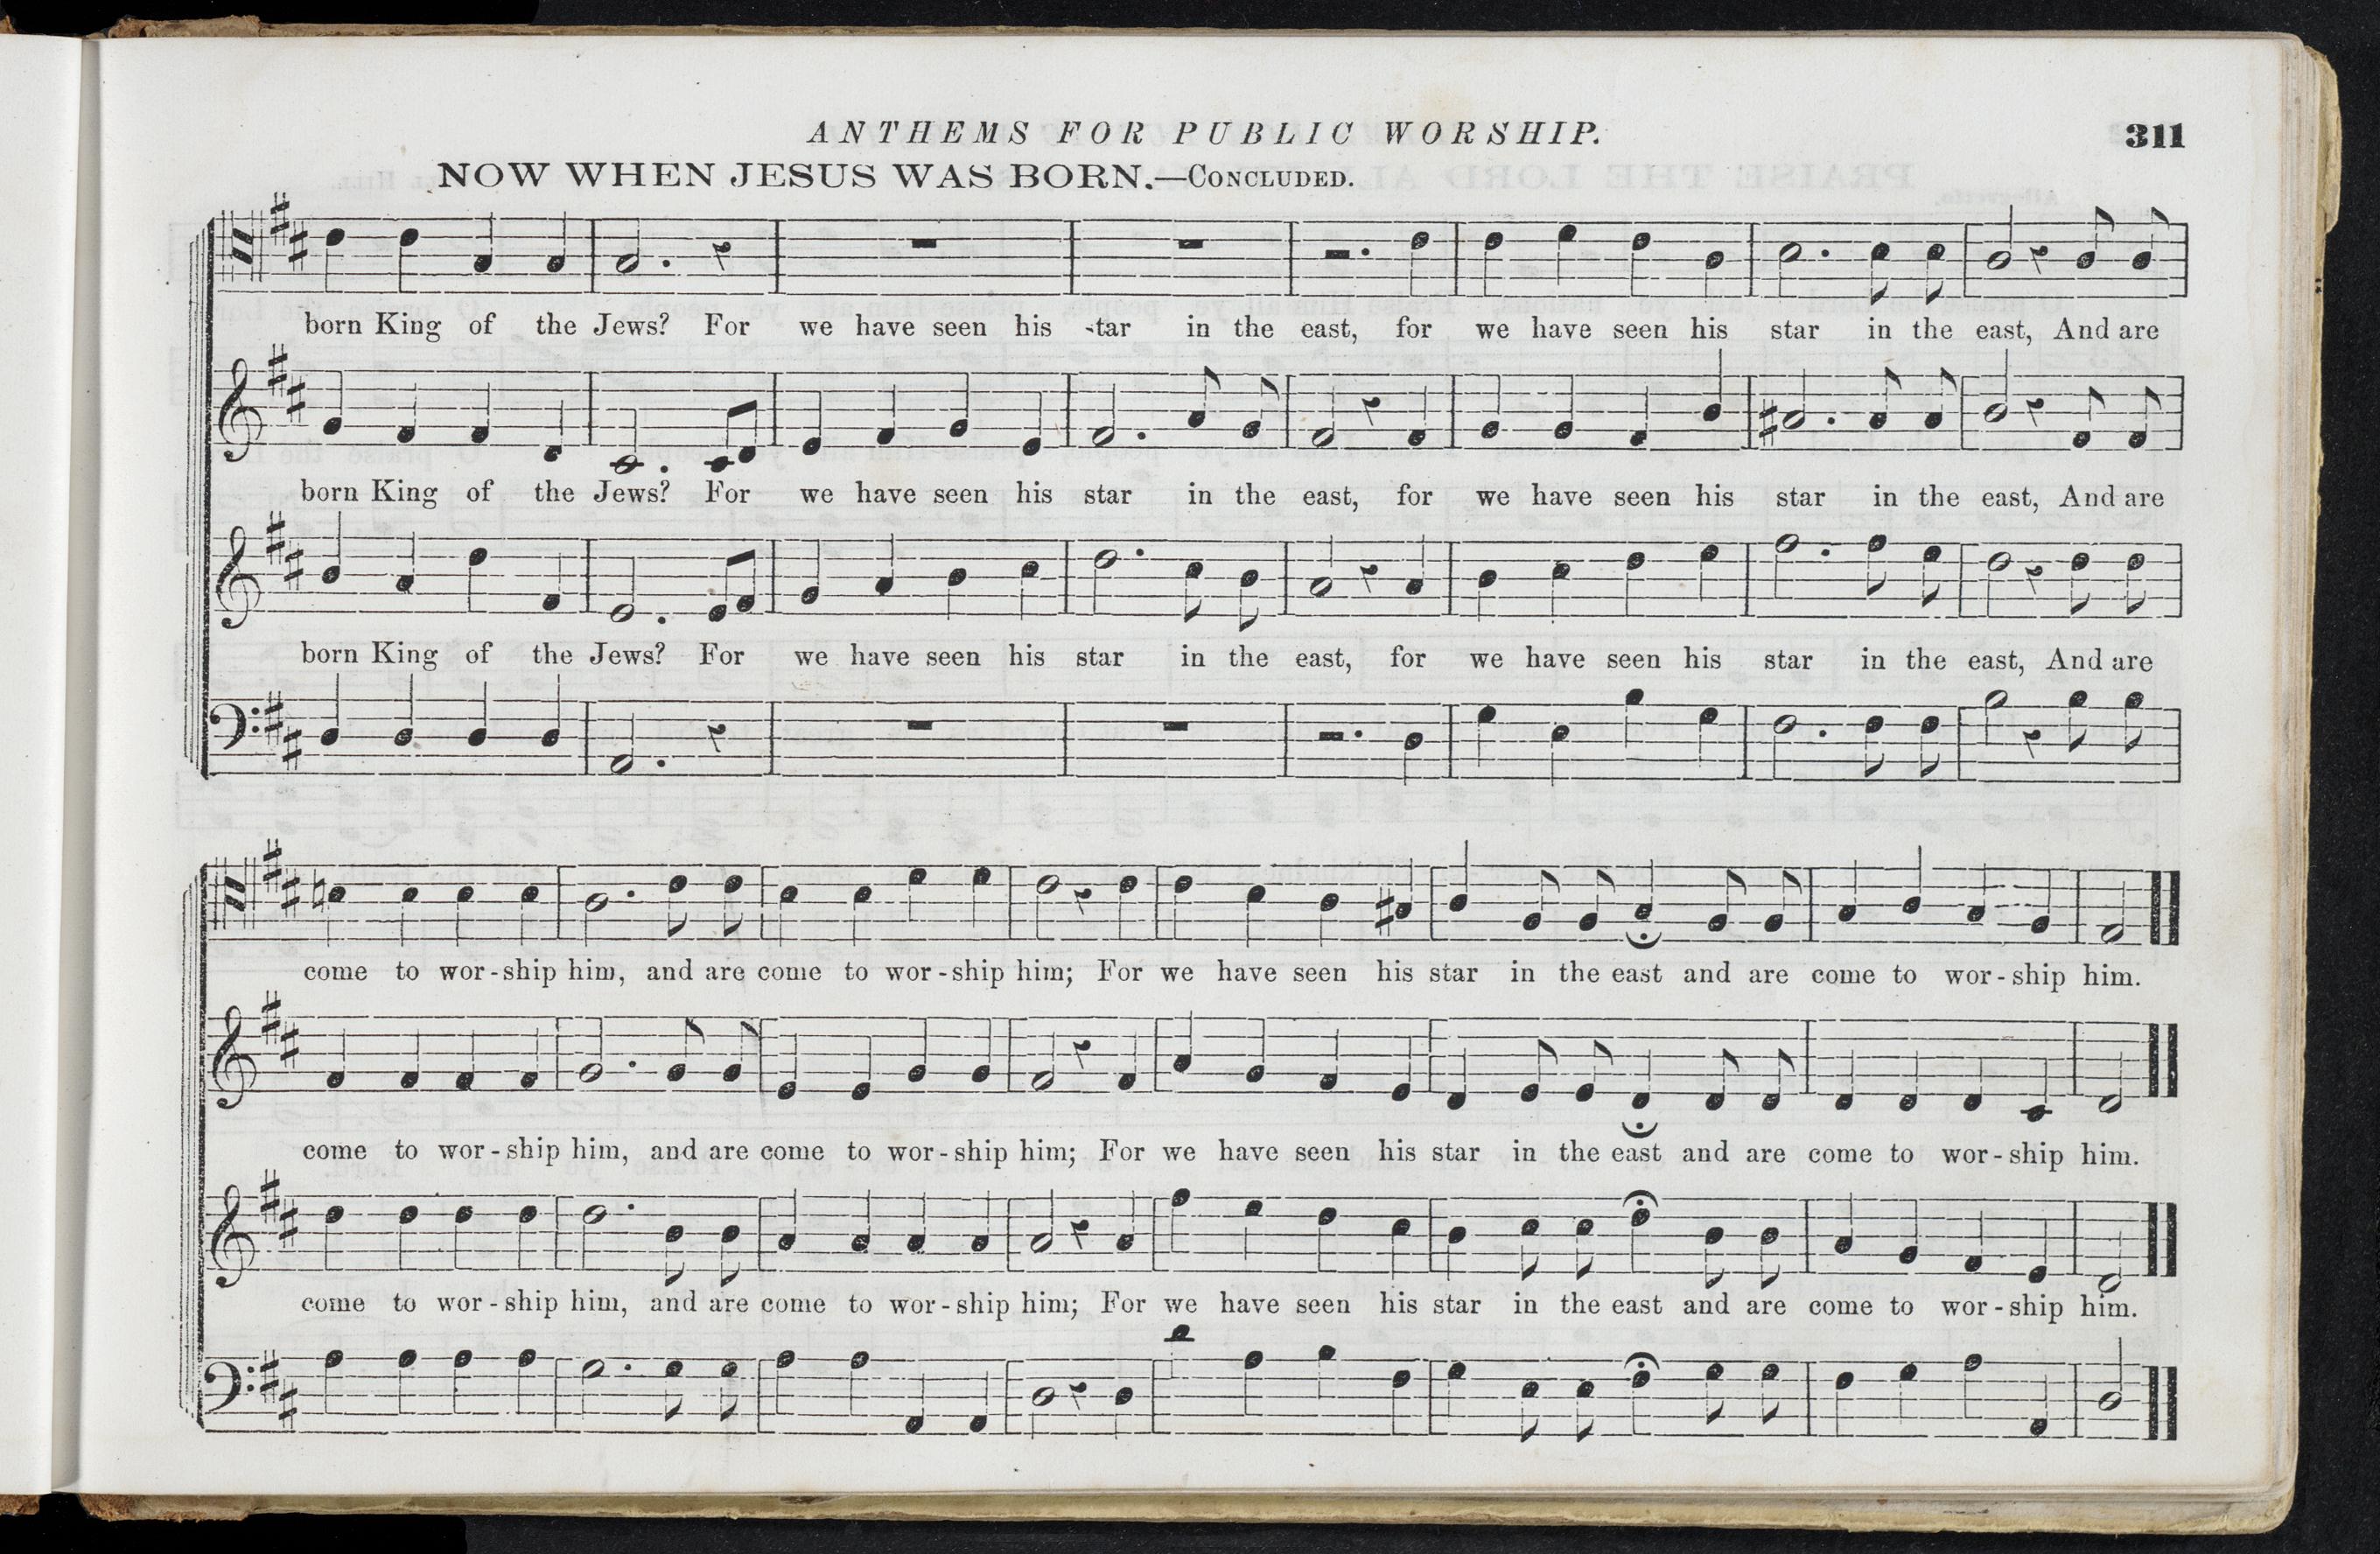 ANTHEMS FOR PUBLIC WORSHIP. 311
NOW WHEN JESUS WAS BORN.—CONCLUDED.
born King of the Jews? For we have seen his star in the east, for we have seen his star in the east, And are
born King of the Jews? For we have seen his star in the east, for we have seen his star in the east, And are
born King of the Jews? For we have seen his star in the east, for we have seen his star in the east, And are
come to wor-ship him, and are come to wor-ship him; For we have seen his star in the east and are come to wor-ship him.
come to wor-ship him, and are come to wor-ship him; For we have seen his star in the east and are come to wor-ship him.
come to wor-ship him, and are come to wor-ship him; For we have seen his star in the east and are come to wor-ship him.